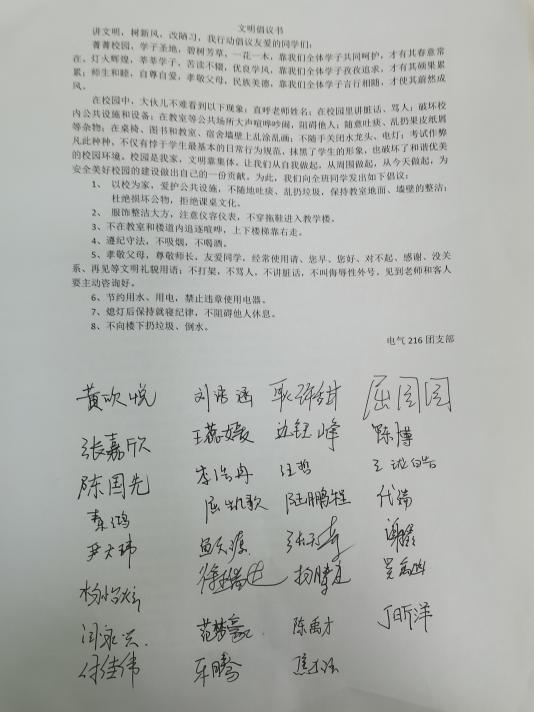 文明倡议书
讲文明，树新风，改陋习，我行动倡议友爱的同学们：
菁菁校园，学子圣地，碧树芳草，一花一木，靠我们全体学子共同呵护，才有其春意常
在。灯火辉煌，莘莘学子，苦读不辍，优良学风，靠我们全体学子孜孜追求，才有其硕果累
累；师生和睦，自尊自爱，孝敬父母，民族美德，靠我们全体学子言行相随，才使其蔚然成
风。
在校园中，大伙儿不难看到以下现象：直呼老师姓名；在校园里讲脏话、骂人；破坏校
内公共设施和设备；在教室等公共场所大声喧哗吵闹，阻碍他人；随意吐痰、乱扔果皮纸屑
等杂物；在桌椅、图书和教室、宿舍墙壁上乱涂乱画；不随手关闭水龙头、电灯；考试作弊
凡此种种，不仅有悖于学生最基本的日常行为规范，抹黑了学生的形象，也破坏了和谐优美
的校园环境。校园是我家，文明靠集体。让我们从自我做起，从周围做起，从今天做起，为
安全美好校园的建设做出自己的一份贡献。为此，我们向全班同学发出如下倡议：
1、 以校为家，爱护公共设施，不随地吐痰、乱扔垃圾，保持教室地面、墙壁的整洁；
杜绝损坏公物，拒绝课桌文化。
2、 服饰整洁大方，注意仪容仪表，不穿拖鞋进入教学楼。
3、不在教室和楼道内追逐喧哗，上下楼梯靠右走。
4、遵纪守法，不吸烟，不喝酒。
5、孝敬父母，尊敬师长，友爱同学，经常使用请、您早、您好、对不起、感谢、没关
系、再见等文明礼貌用语；不打架，不骂人，不讲脏话，不叫侮辱性外号，见到老师和客人
要主动咨询好。
6、节约用水、用电，禁止违章使用电器。
7、熄灯后保持就寝纪律，不阻碍他人休息。
8、不向楼下扔垃圾、倒水。
电气 216 团支部
黄欣悦 刘浩涵 屈圆圆
张嘉欣 边钰峰 陈博
陈国先 李浩冉 汪哲
秦鸿 屈凯歌 陆鹏程 代瑞
尹天玮
闫永兴 范梦豪 陈禹才 丁昕洋
付佳伟 车腾